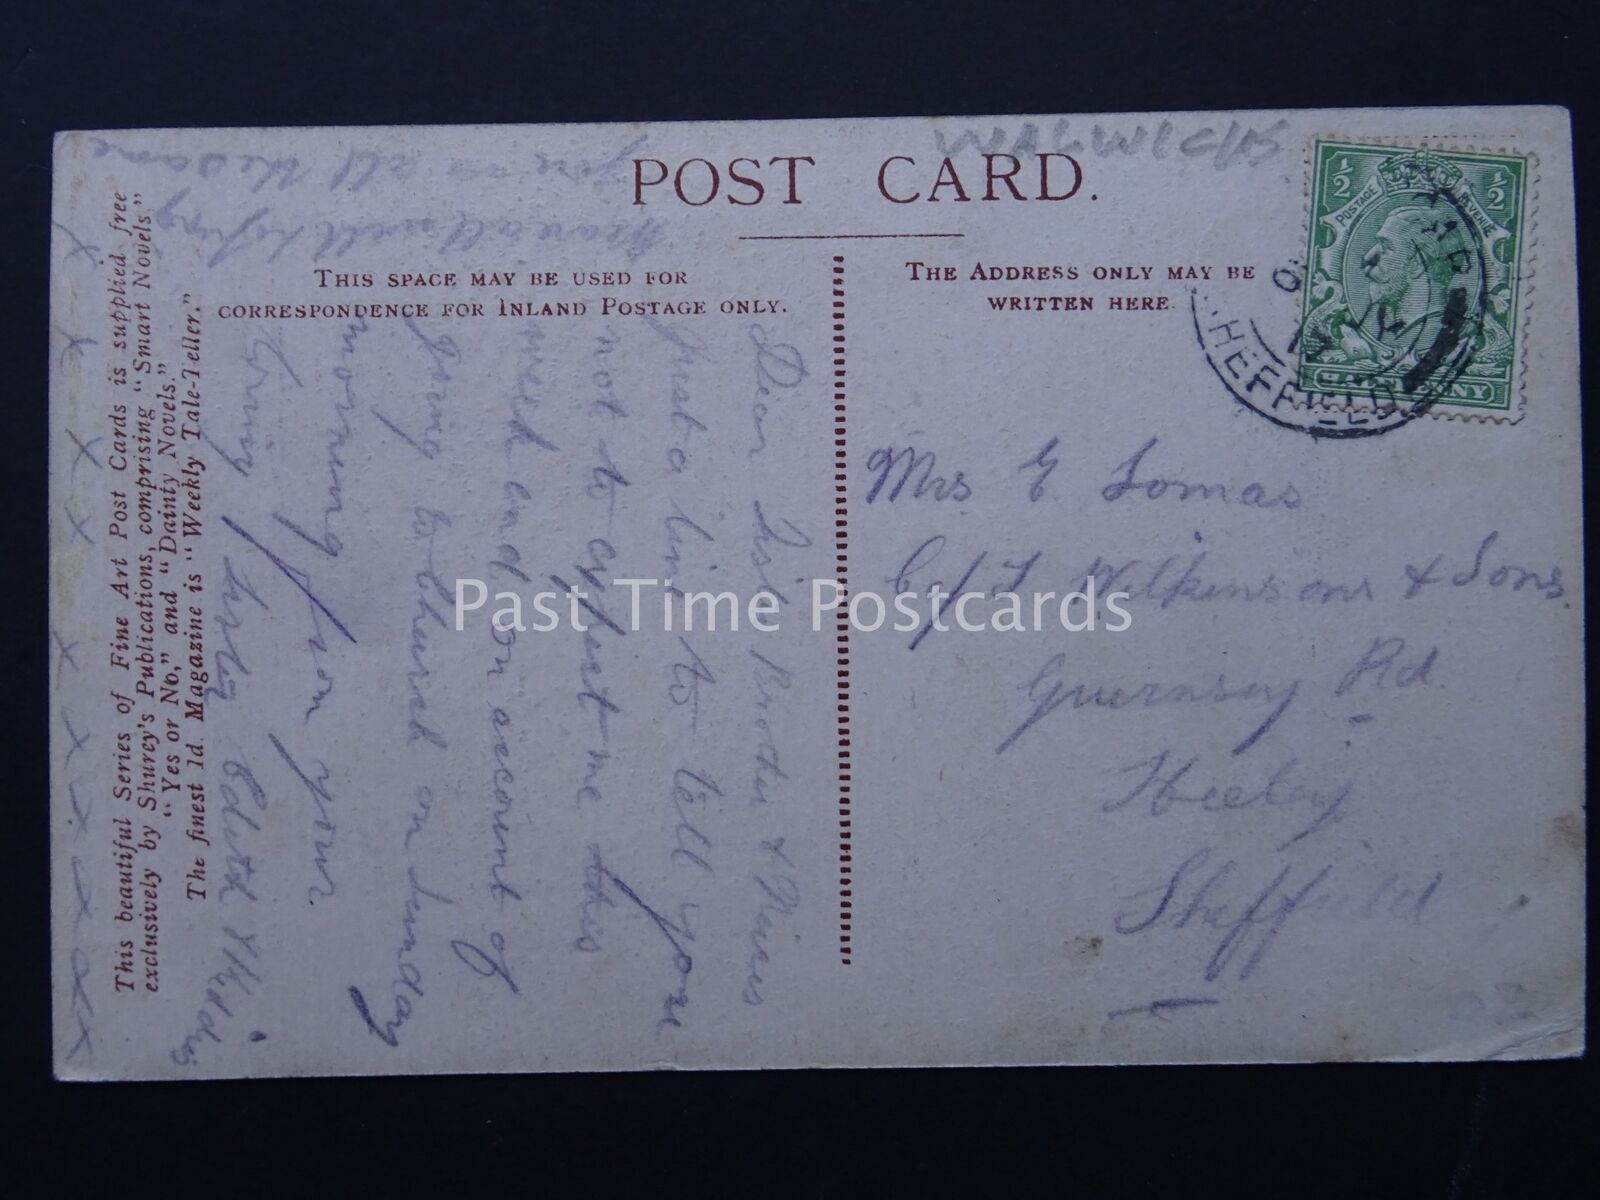 POST CARD.
WARWICKS
THIS SPACE MAY BE USED FOR
CORRESPONDENCE FOR INLAND POSTAGE ONLY.
THE ADDRESS ONLY MAY BE
WRITTEN HERE.
This beautiful Series of Fine Art Post Cards is supplied free
exclusively by Shurey's Publications, comprising "Smart Novels,"
"Yes or No," and "Dainty Novels."
The finest 1d. Magazine is "Weekly Tale-Teller."
Dear Brother &
just a line to tell you
not to expect me this
week end on account of
going to church on Sunday
morning from your
you all the same
all well
x x x x x x x x x x
Mrs E Lomas
C/o T Wilkinsons & Sons
Guernsey Rd
Heeley
Sheffield
½ ½
POSTAGE REVENUE
SHEFFIELD
Past Time Postcards